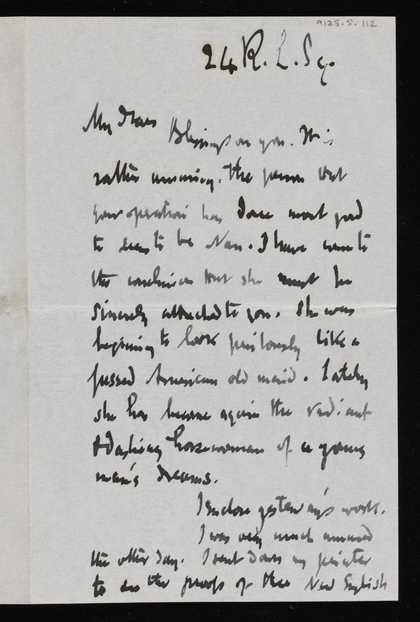 9125.5.112
24 R. L. Sq.
My dear Blessings on you. It is
rather amusing. The person that
your operation has done most good
to seems to be Nan. I have come to
the conclusion that she must be
sincerely attached to you. She was
beginning to look perilously like a
passed American old maid. Lately
she has become again the radiant
& dashing horsewoman of a young
man's dreams.
I enclose yesterday's work.
I was very much amused
the other day. I went down my printer
to see the proofs of the New English